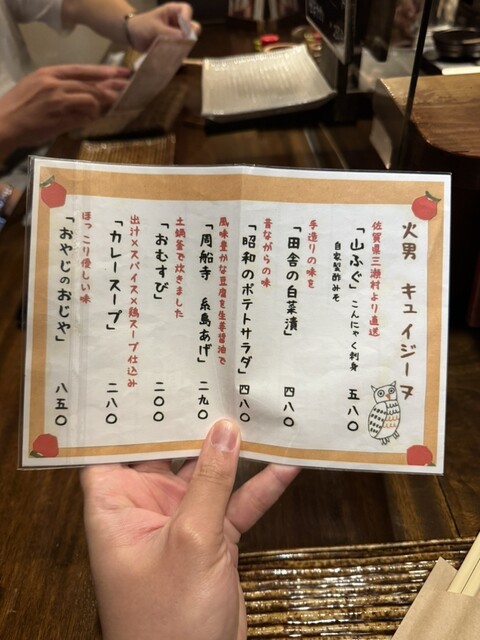 火男 キュイジーヌ
佐賀県三瀬村より直送
「山ふぐ」こんにゃく刺身 五八〇
自家製酢みそ
手造りの味を
「田舎の白菜漬」 四八〇
昔ながらの味
「昭和のポテトサラダ」 四八〇
風味豊かな豆腐を生姜醤油で
「周船寺 糸島あげ」 二九〇
土鍋釜で炊きました
「おむすび」 二〇〇
出汁×スパイス×鶏スープ仕込み
「カレースープ」 二八〇
ほっこり優しい味
「おやじのおじや」 八五〇